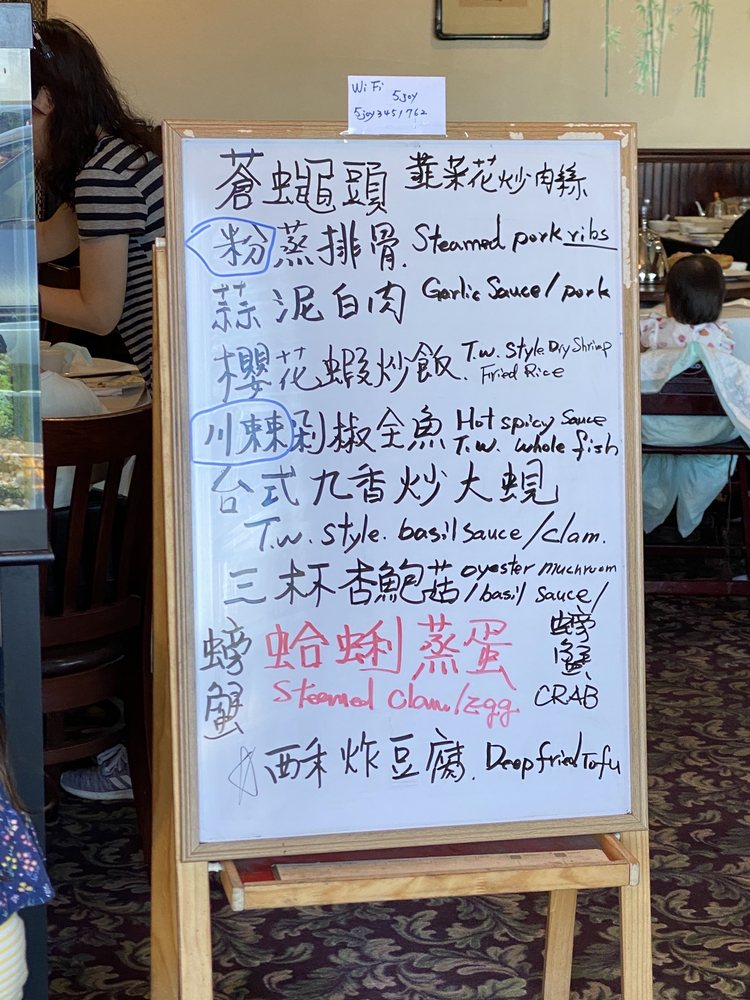 WiFi 5joy
5joy3451762
蒼蠅頭 韮菜花炒肉絲
粉蒸排骨. Steamed pork ribs
蒜泥白肉 Garlic Sauce/pork
櫻花蝦炒飯. T.w. Style Dry Shrimp
Fried Rice
川辣剁椒全魚 Hot spicy sauce
T.w. whole fish
台式九香炒大蜆
T.w. style. basil sauce/clam.
三杯杏鮑菇 oyester muchroom
/basil sauce/
螃蟹
蛤蜊蒸蛋
Steamed Clam/Egg
螃蟹
CRAB
酥炸豆腐. Deepfried Tofu